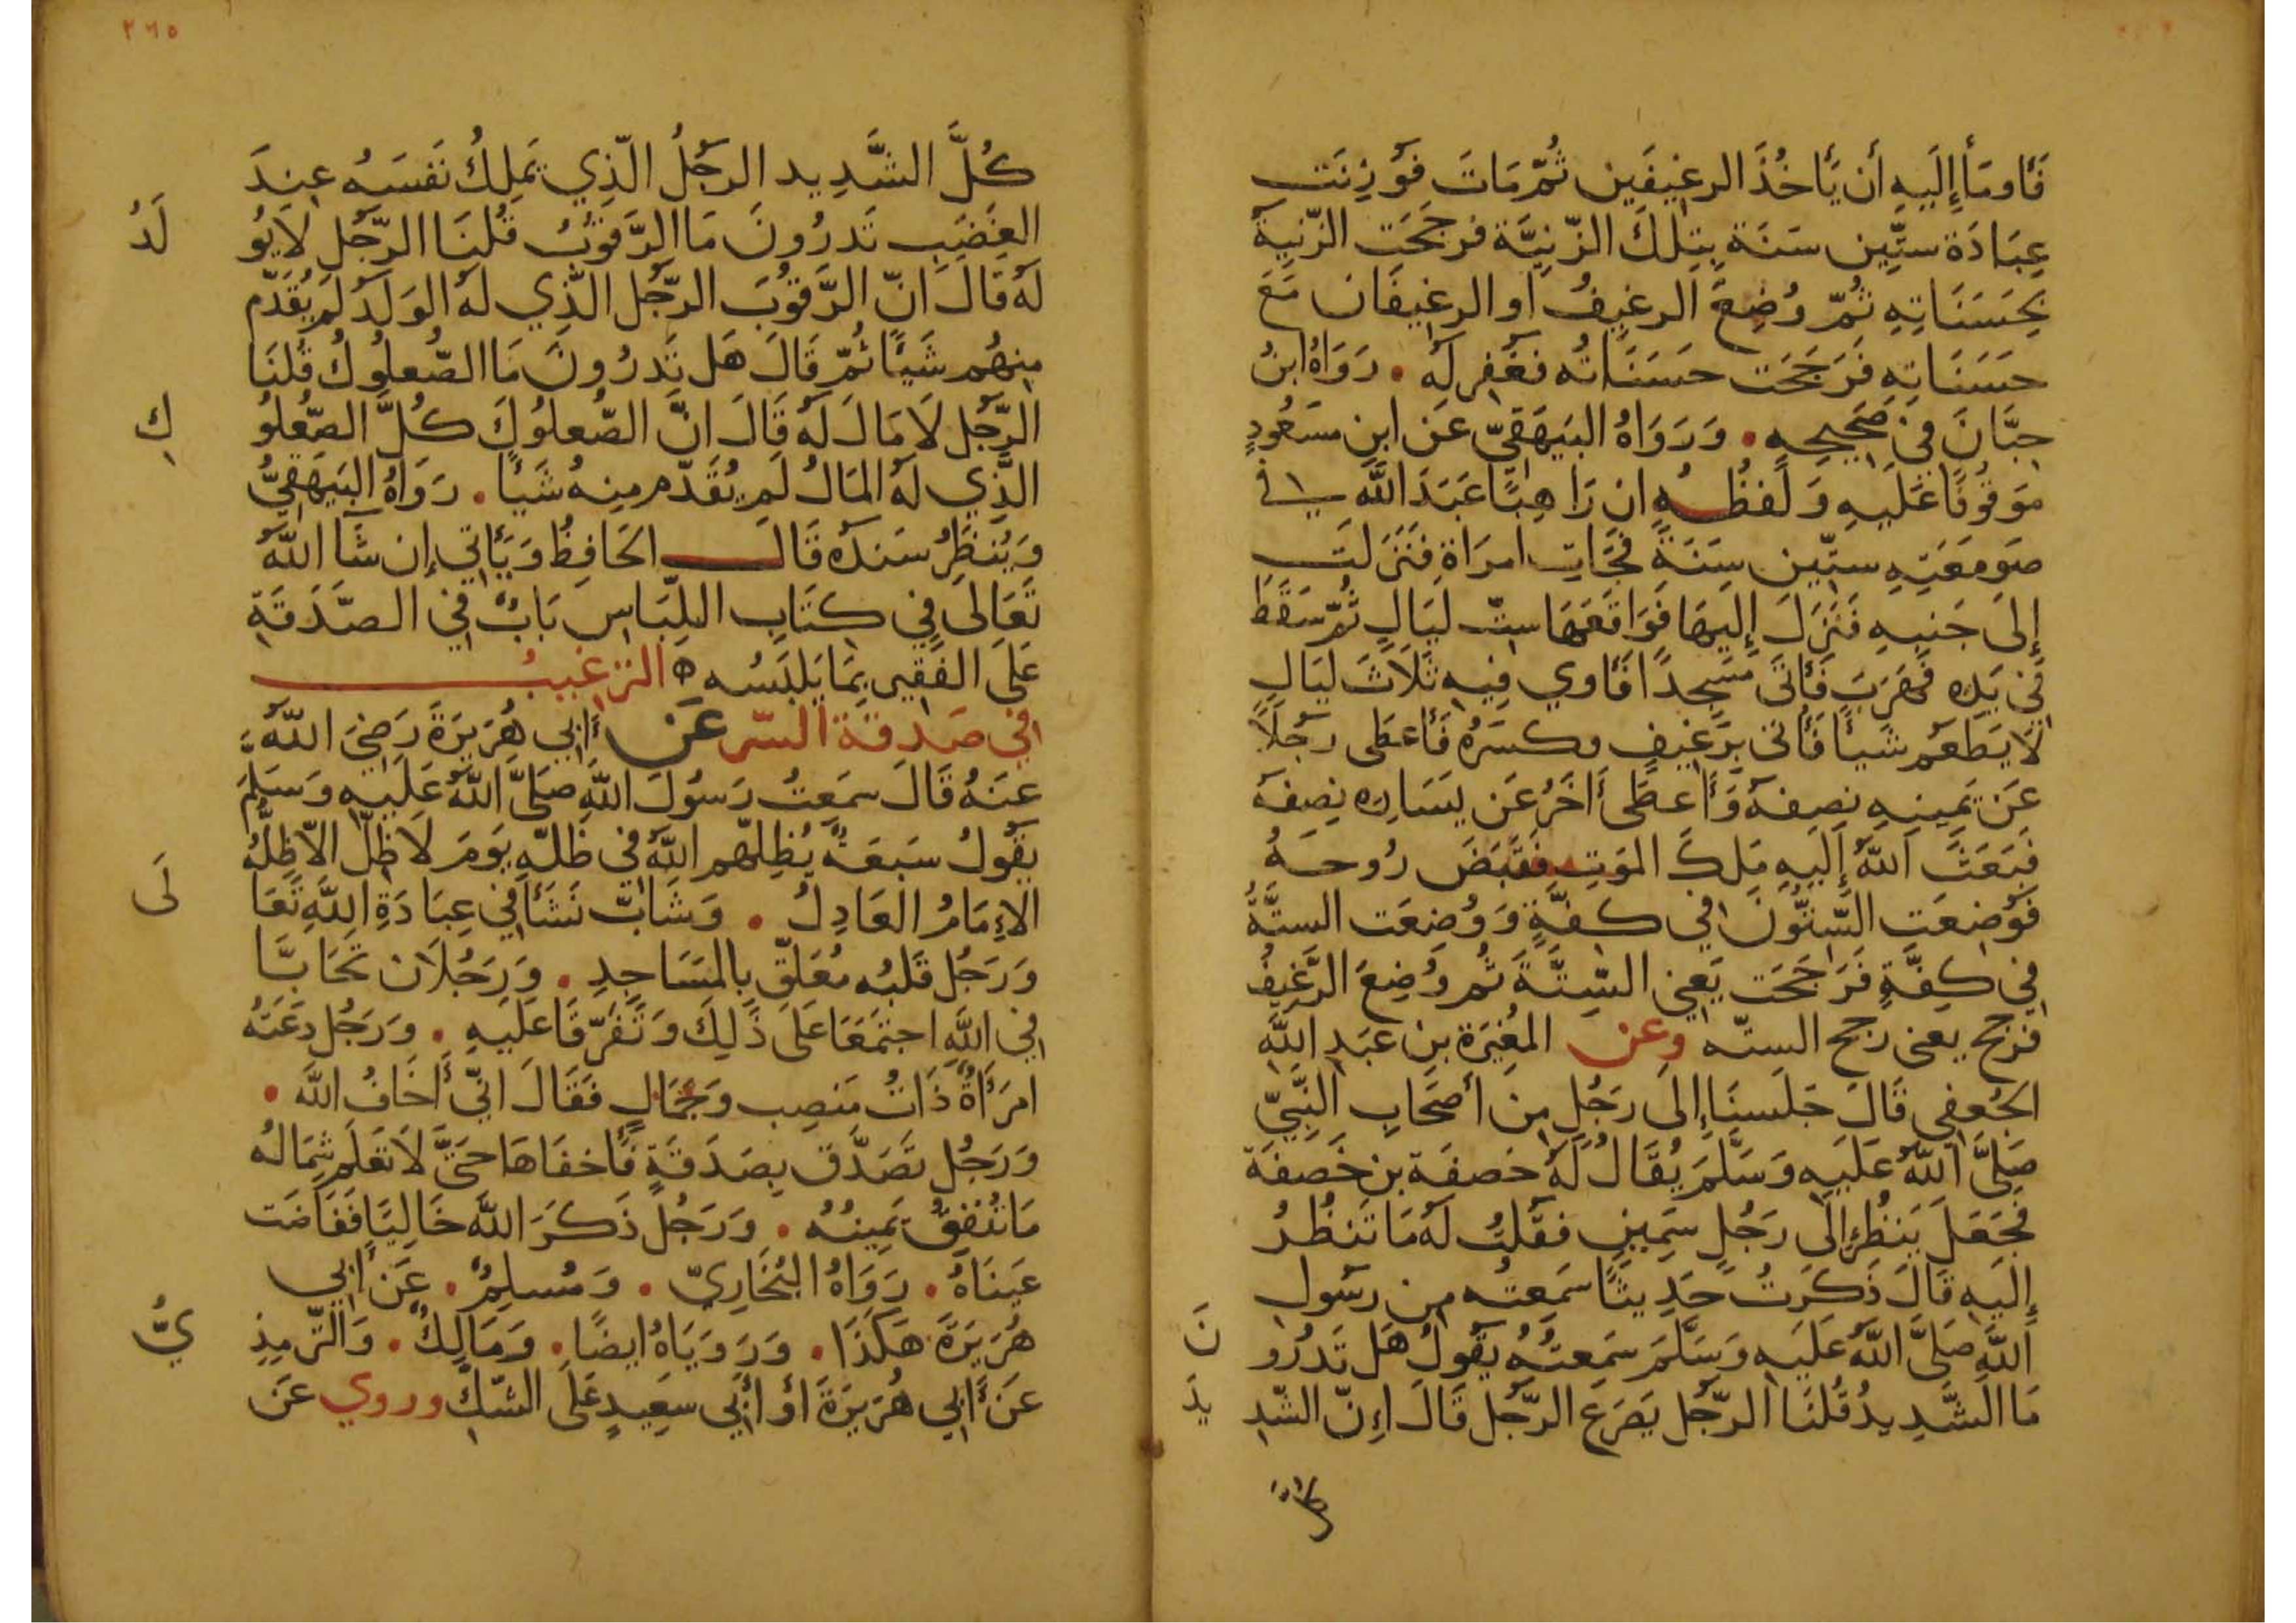 فَأَومَأَ إِلَيهِ أَن يَأخُذَ الرغِيفَين ثُمّ مَاتَ فَوُزِنَت
عِبَادَة ستِّين سَنَة بِتِلكَ الزّنيَّة فرجَحَت الزّنيَة
بِحَسَنَاتِهِ ثُمّ وُضِعَ الرغيفُ او الرغِيفَان مَعَ
حسَنَاتِهِ فَرَجَحَت حسَنَاتُه فغُفِر لَه . رَوَاهُ ابنُ
حِبَّانَ في صَحِيحِهِ . وَرَوَاهُ البَيهَقِيّ عَن ابنِ مسَعُودٍ
موَقُوفًا عَلَيهِ وَلَفظُــهُ ان رَاهِبًا عَبَدَ اللَّه في
صَومَعَتِهِ ستّين سَنَةً فَجَاتِ امرَاة فنَزلَت
إِلىَ جَنبِهِ فَنَزَلَ إِلَيهَا فَوَاقَعَهَا ستّ لَيَالٍ ثُمّ سَقَطَ
فيِ يَدِه فَهَرَبَ فَأَتَى مَسجِدًا فَأَوي فِيهِ ثَلاَثَ لَيَالٍ
لاَ يَطعَم شَيأً فَأُتى برَغيفٍ وكسَرَهُ فَأَعطى رجُلاً
عَن يَمِينِهِ نِصفهُ وَأَعطَى أَخَرُ عَن يَسَارِه نِصفَهُ
فبَعَثَ اللَّهُ إِلَيهِ مَلكَ المَوتِ فَقَبَضَ رُوحــهُ
فَوُضعَت السّتُّونَ في كفَّةٍ وَوُضعَت الستَّةُ
في كِفَّةٍ فَرَجَحَت يَعني السّتَّةَ ثُم وُضِعَ الرَّغيفُ
فرَجح يعنى رجح الستّه وعن المُغِيَرة بنِ عَبَدِ اللَّهِ
الجُعفِي قَالَ جَلَسنَا إِلىَ رَجُلٍ مِن أَصحَابِ النَّبِيّ
صَلىَّ اللَّهُ عَلَيهِ وَسَلَّمَ يُقَالُ لَهُ خصفَة بن خَصفَة
فَجَعَلَ يَنظُر إِلىَ رَجُلٍ سَمِينٍ فقُلتُ لَه مَا تَنظُرُ
إِلَيهِ قَالَ ذَكرَتُ حَدِيثًا سَمِعتُه مِن رسُولِ
اللَّهِ صَلىَّ اللَّهُ عَلَيهِ وَسَلَّمَ سَمِعتُهُ يَقُولُ هَل تَدرُو
نَ
مَا الشَّدِيدُ قُلنَا الرّجُل يَصَرَع الرّجُل قَالَ إِنّ الشّدِ
يدَ
كُلَّ الشَّدِيد الرجُلُ الّذِي يَملِكُ نَفسَهُ عِندَ
الغَضَبِ تَدرُونَ مَا الرَّقوُبُ قُلنَا الرّجُل لاَ يُو
لَدُ
لَه قَالَ انّ الرَّقوُبَ الرّجُل الَّذِي لَه الوَلَدُ لَم يُقَدّم
مِنهُم شَيًا ثُمّ قَالَ هَل تَدرُونَ مَا الصّعلُوكُ قُلنَا
الرّجُل لاَ مَالَ لَه قَالَ انَّ الصّعلُوكَ كُلَّ الصّعلُو
كِ
الَّذِي لَه المَالُ لَم يُقَدّم مِنهُ شَيًا . رَوَاهُ البَيهَقِيُّ
وَيُنظَرُ سَندُه قَالــ الحَافِظُ وَيَأتي إِن شَا اللَّه
تَعَالىَ في كتَابِ اللّبَاسِ بَابٌ في الصَّدَقَةِ
عَلىَ الفَقِير بِمَا يَلبَسُه ه التَرغيبُ
في صَدقَة السّر عَن أَبي هُرَيرَةَ رَضيَ اللَّه
عَنهُ قَالَ سَمِعتُ رَسُولَ اللَّهِ صَلىَّ اللَّهُ عَلَيهِ وَسَلمَ
يَقُولُ سَبعَةٌ يُظِلّهم اللَّه في ظلّهِ يَومَ لاَ ظِلّ الاّ ظِلّهُ
الإِمَامُ العَادِلُ . وَشَابّ نَشَأَ في عِبَادَةِ اللَّهِ تَعَا
لَى
وَرَجُل قَلبُه مُعَلَّق بِالمَسَاجِدِ . وَرَجُلاَن تَحَابَّا
في اللَّهِ اجتَمَعَا عَلىَ ذَلِكَ وَتَفَرّقَا عَلَيهِ . وَرَجُل دعَتهُ
امرَأَةٌ ذَاتُ مَنصِب وَجَمَالٍ فَقَالَ انّي أَخَافُ اللَّهَ .
وَرَجُل تَصَدَّق بِصَدَقَةٍ فَأَخفَاهَا حَتىَّ لاَ تَعلَم شِمَالُه
مَا تُنفِقُ يَمِينُهُ . وَرَجُل ذَكَرَ اللَّهَ خَالِيًا فَفَاضَت
عَينَاهُ . رَوَاهُ البُخَارِيّ . وَمُسلِمٌ . عَن أَبي
هُرَيرَةَ هَكَذَا . وَرَوَيَاهُ ايضًا . وَمَالِكٌ . وَالتّرمِذِ
يُّ
عَن أَبي هُرَيرَةَ أَو أَبي سعِيدٍ عَلَى الشّكِّ وروي عَن